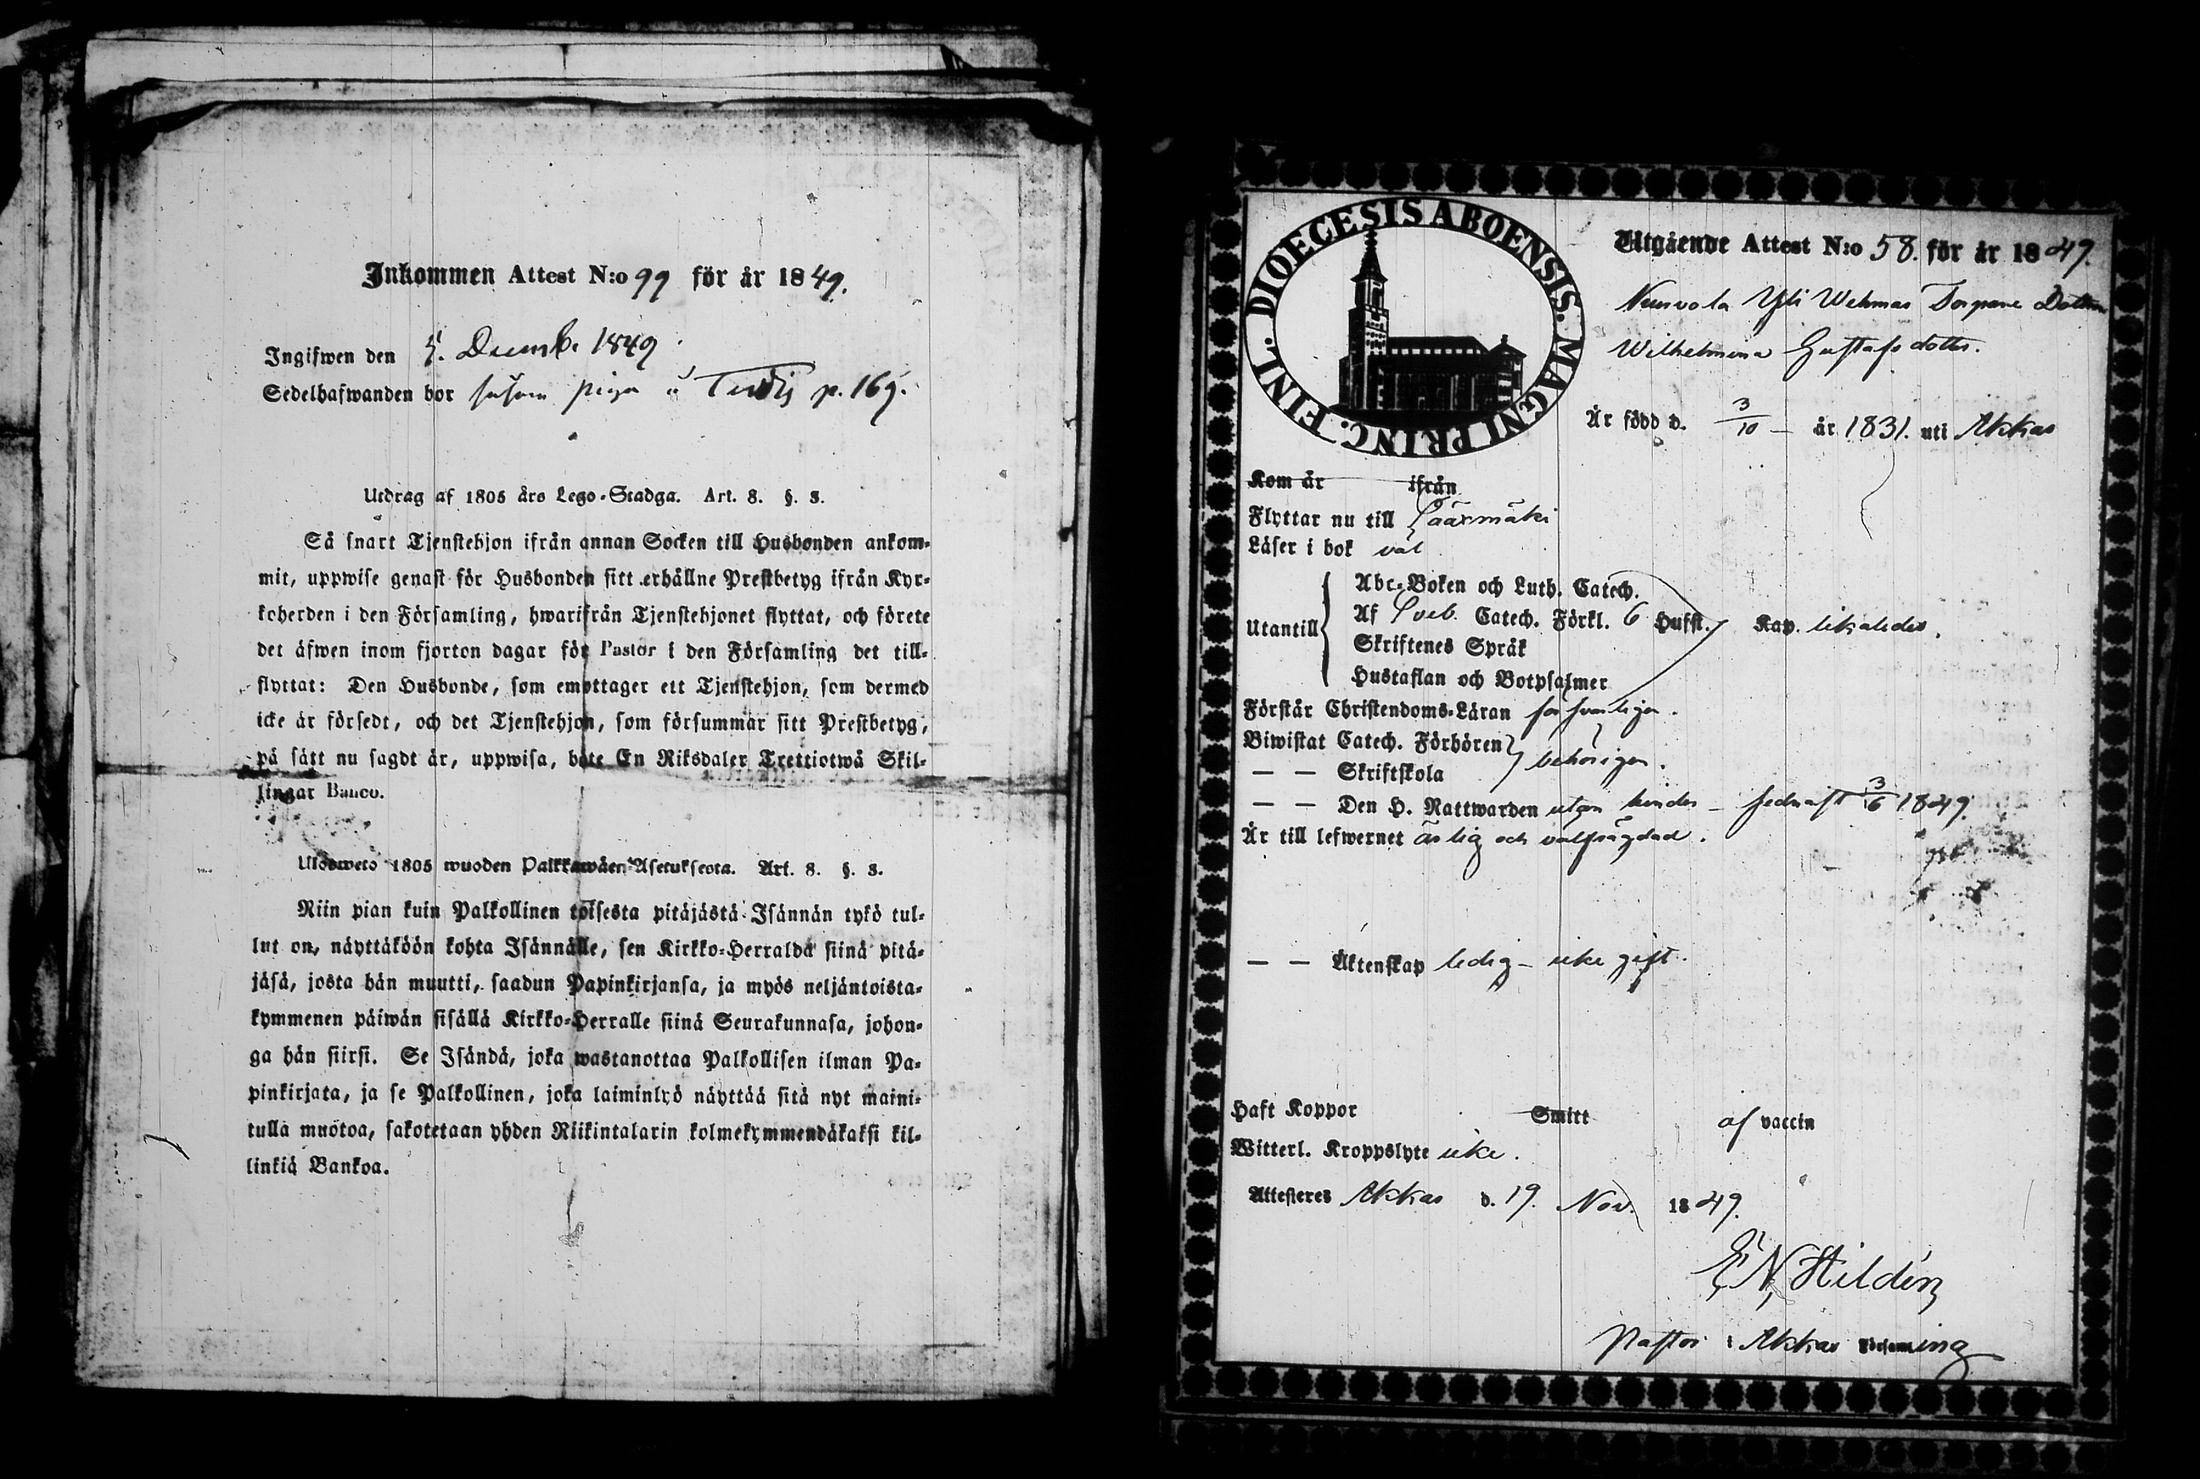 Inkommen Attest N:o 99 för år 1849.
Ingifwen den 5. Decemb. 1849.
Sedelhafwanden bor såsom piga å p. 169.
Utdrag af 1805 års Lego-Stadga. Art. 8. §. 3.
Så snart Tjenstehjon ifrån annan Socken till Husbonden ankom-
mit, uppwise genast för Husbonden sitt erhållne Prestbetyg ifrån Kyr-
koherden i den Församling, hwarifrån Tjenstehjonet flyttat, och förete
det äfwen inom fjorton dagar för Pastor i den Församling det till-
flyttat: Den Husbonde, som emottager ett Tjenstehjon, som dermed
icke är försedt, och det Tjenstehjon, som försummar sitt Prestbetyg,
på sätt nu sagdt är, uppwisa, böte En Riksdaler Trettiotwå Skil-
lingar Banco.
Ulosweto 1805 wuoden Palkkawäen Asetuksesta. Art. 8. §. 3.
Niin pian kuin Palkollinen toisesta pitäjästä Isännän tykö tul-
lut on, näyttäköön kohta Isännälle, sen Kirkko-Herralda siinä pitä-
jäsä, josta hän muutti, saadun Papinkirjansa, ja myös neljäntoista-
kymmenen päiwän sisällä Kirkko-Herralle siinä Seurakunnasa, johon-
ga hän siirsi. Se Isändä, joka wastanottaa Palkollisen ilman Pa-
pinkirjata, ja se Palkollinen, joka laiminlyö näyttää sitä nyt maini-
tulla muotoa, sakotetaan yhden Riikintalarin kolmekymmendäkaksi kil-
linkiä Bankoa.
DIOECESIS ABOENSIS. MAGNI PRINC. FINL.
Utgående Attest N:o 58. för år 1849.
Yli Wehmas Torpare Dotter
Wilhelmina Gustafsdotter.
Är född d. 3/10 — år 1831. uti Akkas
Kom år ifrån
Flyttar nu till Sääxmäki
Läser i bok väl
Utantill
Abc-Boken och Luth. Catech.
Af Sveb. Catech. Förkl. 6 Hufst. Kap. likaledes.
Skriftenes Språk
Hustaflan och Botpsalmer
Förstår Christendoms-Läran försvarligen.
Biwistat Catech. Förhören
— — Skriftskola behörigen.
— — Den H. Nattwarden utan hinder – sednast 3/6 1849.
Är till lefwernet ärlig och välfrägdad.
— — Äktenskap ledig – icke gift.
Haft Koppor Smitt af vaccin
Witterl. Kroppslyte icke.
Attesteres Akkas d. 19. Nov. 1849.
E N Hildén
Pastor i Akkas Församling